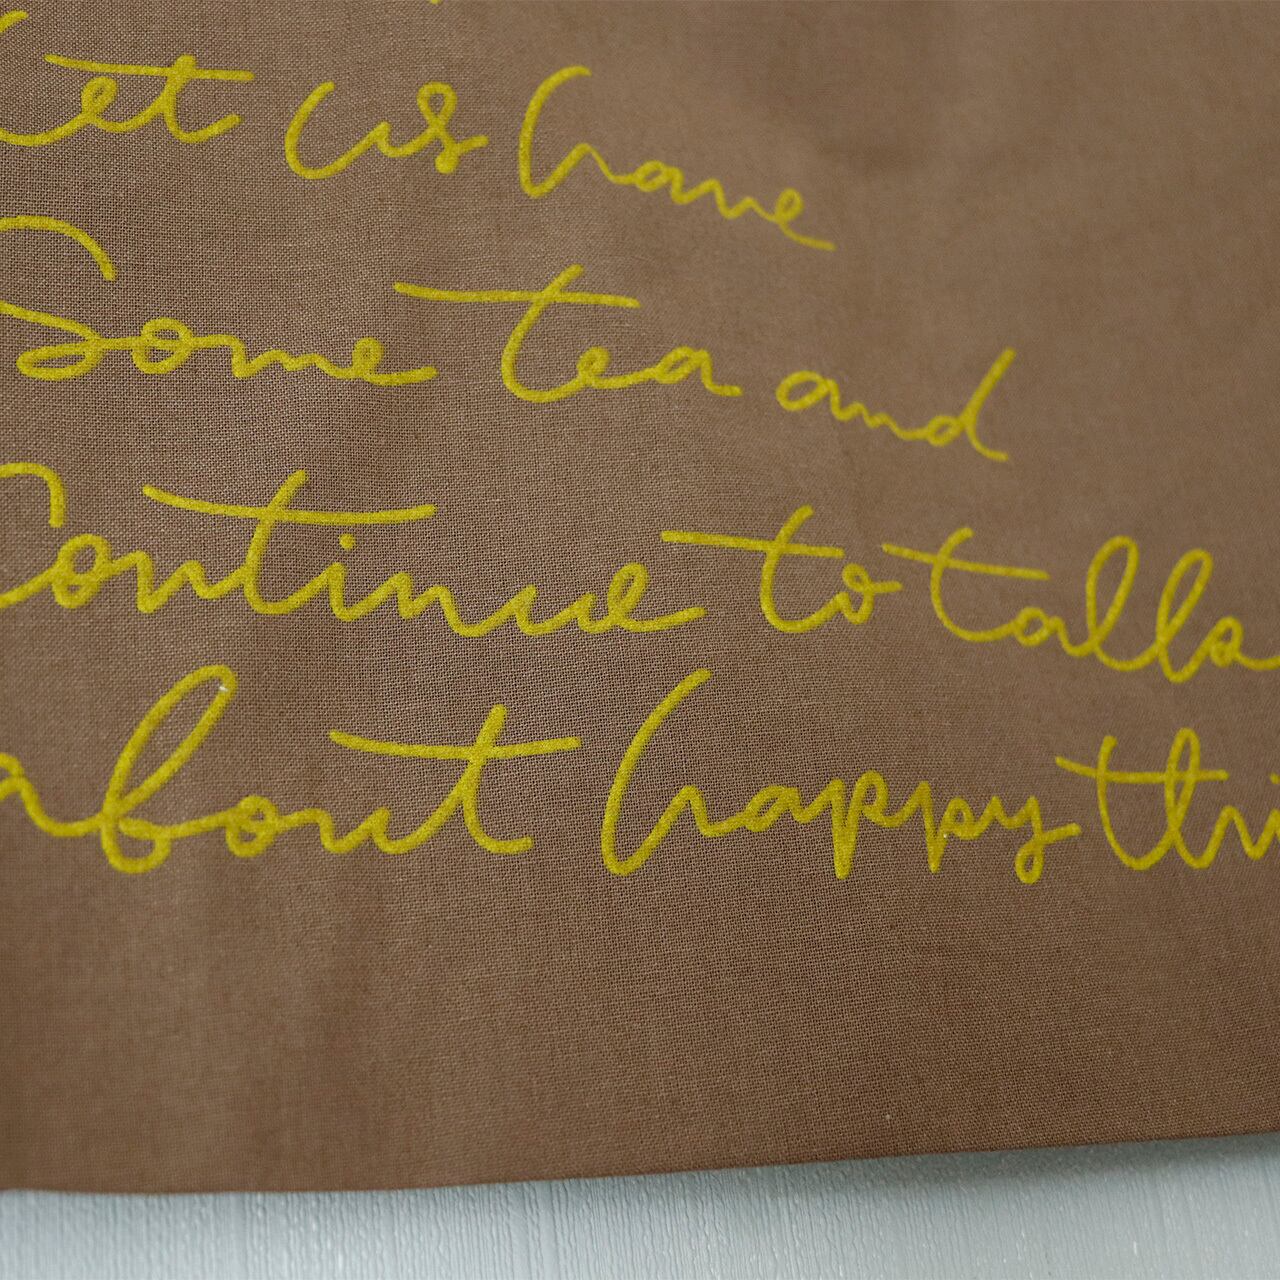 Let us have
Some tea and
Continue to talk
about happy thi